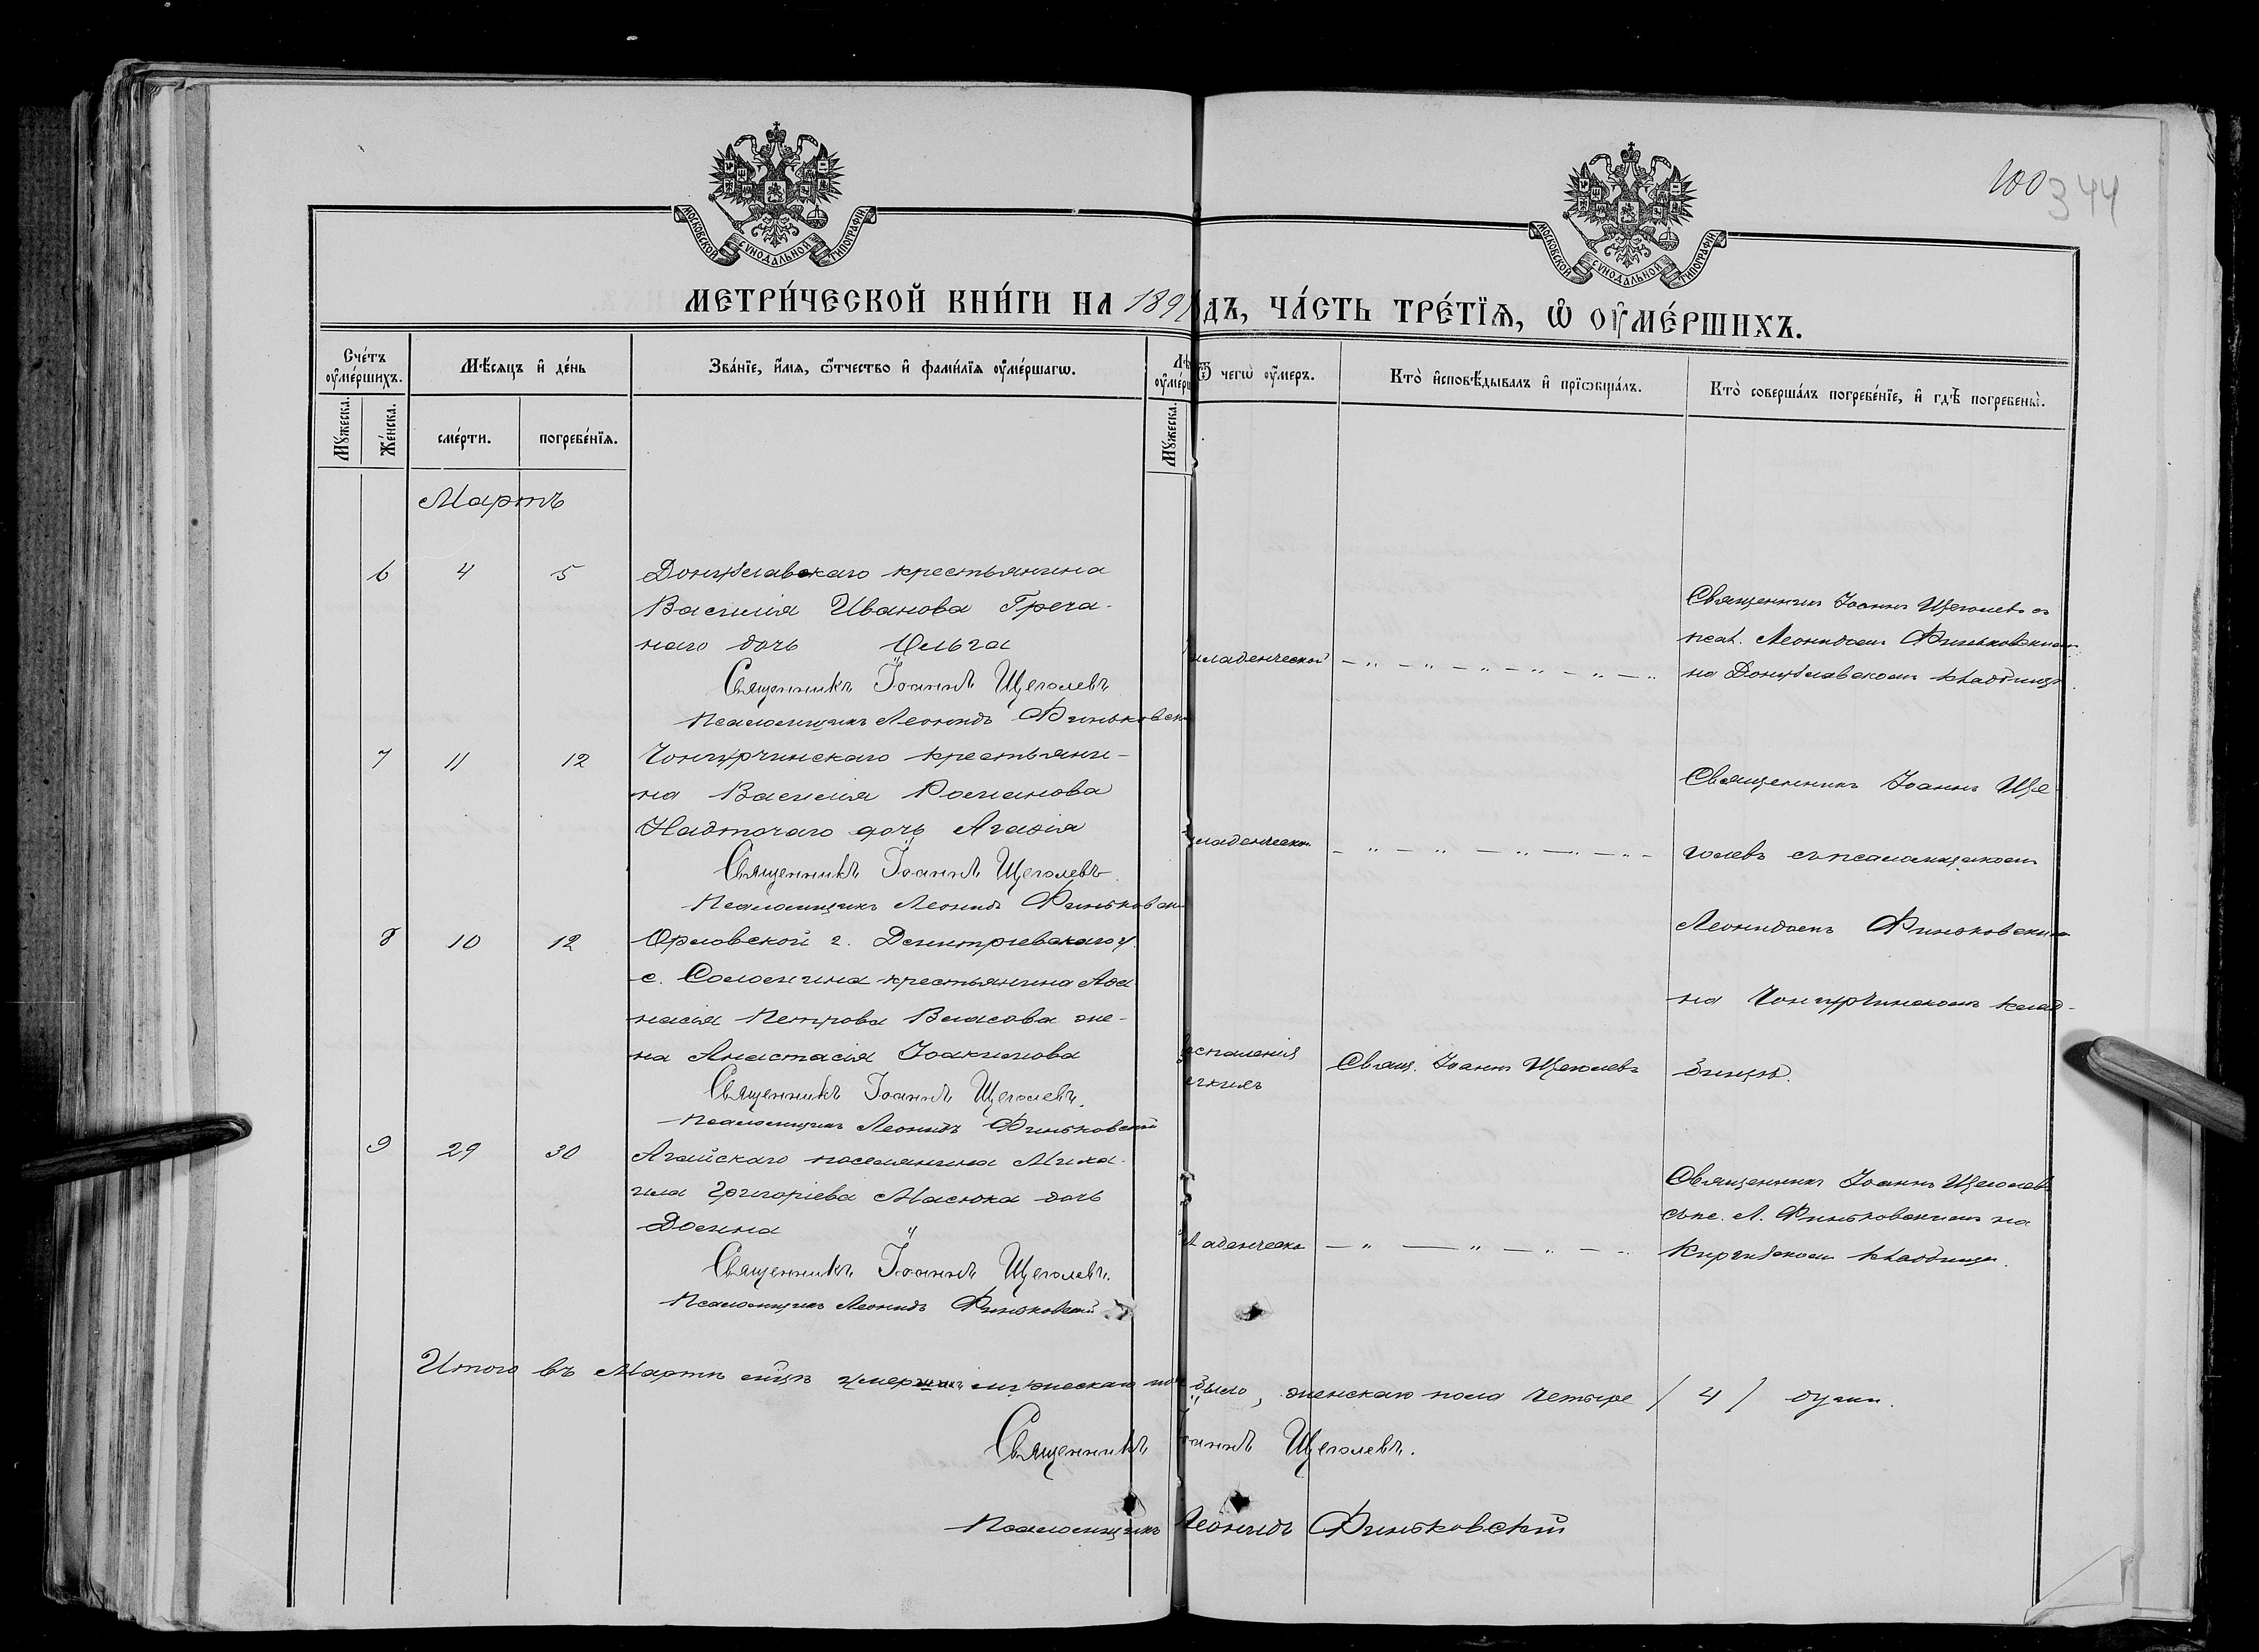 100
344
МОСКОВСКОЙ СѴНОДАЛЬНОЙ ТИПОГРАФІИ
МОСКОВСКОЙ СѴНОДАЛЬНОЙ ТИПОГРАФІИ
МЕТРИ́ЧЕСКОЙ КНИ́ГИ НА 189 ДЪ, ЧА́СТЬ ТРЕ́ТЇѦ, Ѡ҆ ОУ҆МЕ́РШИХЪ.
Сче́тъ оу҆ме́ршихъ.
Мѣ́сяцъ и҆ де́нь
Зва́нїе, и҆́мя, ѻ҆́тчество и҆ фами́лїя оу҆ме́ршагѡ.
Ѿ чегѡ̀ оу҆́меръ.
Кто̀ и҆сповѣ́дывалъ и҆ прїѡбща́лъ.
Кто̀ соверша́лъ погребе́нїе, и҆ гдѣ̀ погребены̀.
Мꙋ́жеска.
Же́нска.
сме́рти.
погребе́нїя.
Мꙋ́жеска.
Мартъ
6 4 5 Донузлавскаго крестьянина
Василія Иванова Греча-
наго дочь Ольга
Священникъ Іоаннъ Щеголевъ
Псаломщикъ Леонидъ Финьковск
младенческой
Священникъ Іоаннъ Щеголевъ съ
псал. Леонидомъ Финьковским
на Донузлавскомъ кладбищѣ.
7 11 12 Чонгурчинскаго крестьяни-
на Василія Романова
Надточаго дочь Агафія
Священникъ Іоаннъ Щеголевъ
Псаломщикъ Леонидъ Финьковск
младенческой
Священникъ Іоаннъ Ще
голевъ съ псаломщикомъ
Леонидомъ Финьковским
на Чонгурчинскомъ клад-
бищѣ.
8 10 12 Орловской г. Дмитріевскаго у.
с. Соломина крестьянина Афа
насія Петрова Власова же-
на Анастасія Іоакимова
Священникъ Іоаннъ Щеголевъ.
Псаломщикъ Леонидъ Финьковскій
воспаленія
легкихъ
Свящ. Іоаннъ Щеголевъ
9 29 30 Агайскаго поселянина Миха-
ила Григоріева Масюка дочь
Домна
Священникъ Іоаннъ Щеголевъ.
Псаломщикъ Леонидъ Финьковскій
младенческо
Священникъ Іоаннъ Щеголевъ
съ пс. Л. Финьковскимъ на
кладбищѣ.
Итого въ Мартѣ мцѣ умершихъ мужескаго по было, женскаго пола четыре / 4 / души.
Священникъ Іоаннъ Щеголевъ.
Псаломщикъ Леонидъ Финьковскій